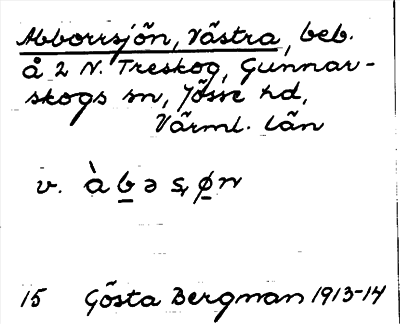 Abborrsjön, Västra, beb.
å 2 N. Treskog, Gunnar-
skogs sn, Jösse hd,
Värml. län
v. àbəsø̠n
15 Gösta Bergman 1913-14